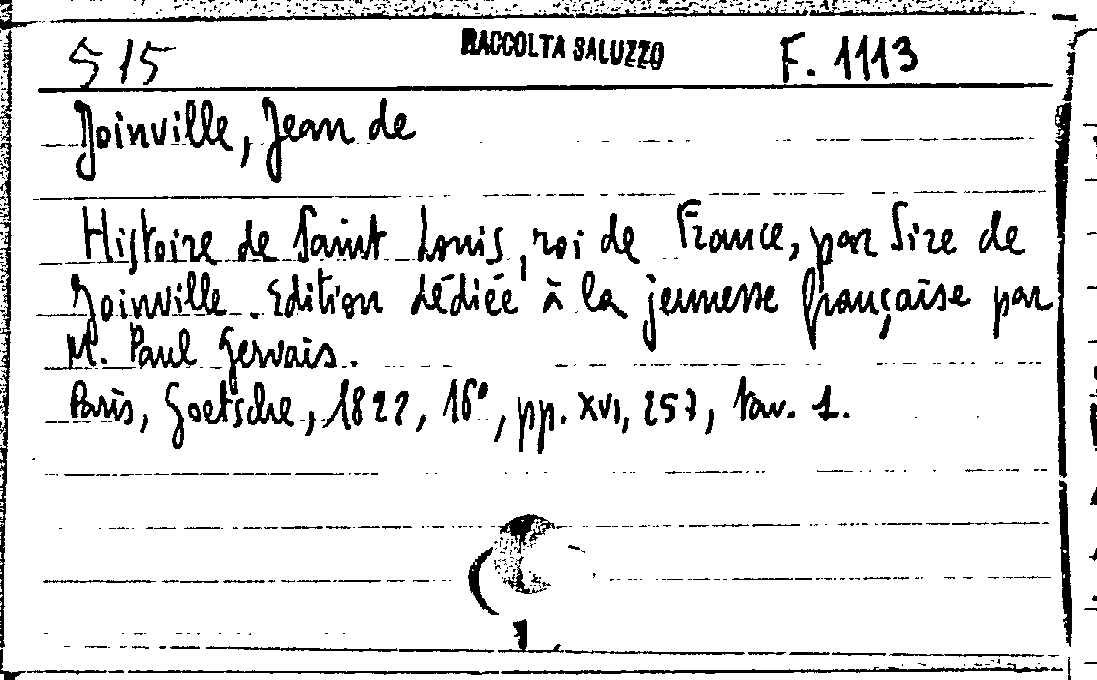 515 RACCOLTA SALUZZO F. 1113
Joinville, Jean de
Histoire de Saint Louis, roi de France, par Sire de
Joinville. Edition dédiée à la jeunesse française par
M. Paul Gervais.
Paris, Goetsche, 1822, 16°, pp. XVI, 257, tav. 1.